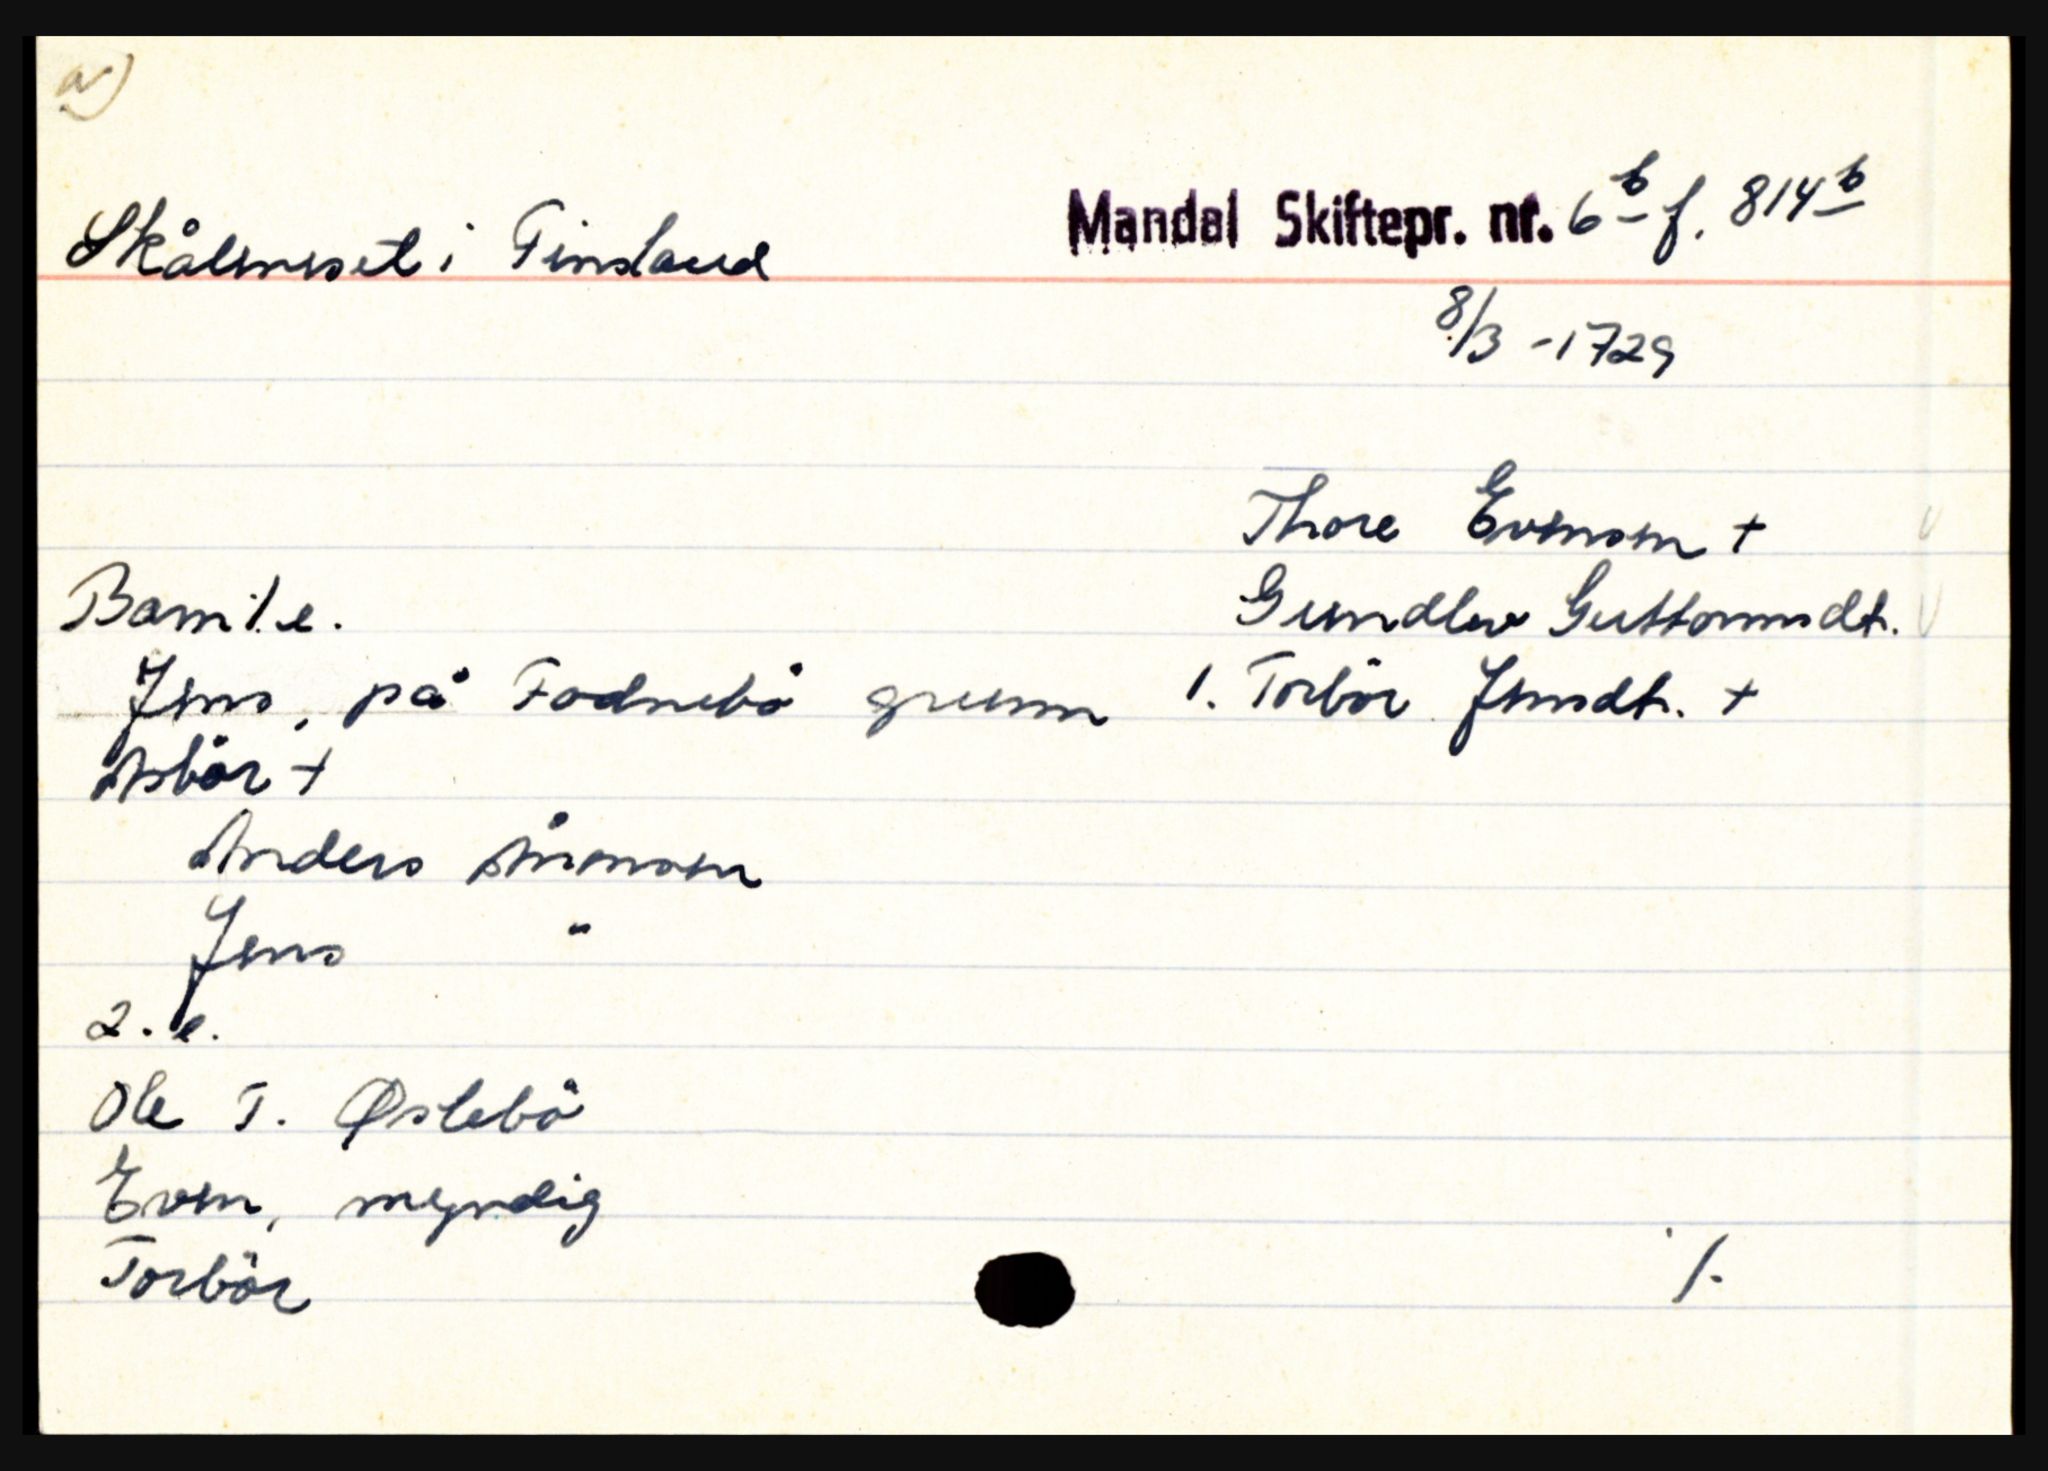 a)
Mandal Skiftepr. nr. 6b f. 814b
Skålevset i Finsland
8/3 - 1729
Thore Evensen +
Barn 1. e. Gundlev Guttormsdt.
Jens, på Fodnebö grunn 1. Torbör Jensdt. +
Asbör +
Anders Ånensen
Jens "
2. e.
Ole T. Øslebö
Even, myndig
Torbör
/.